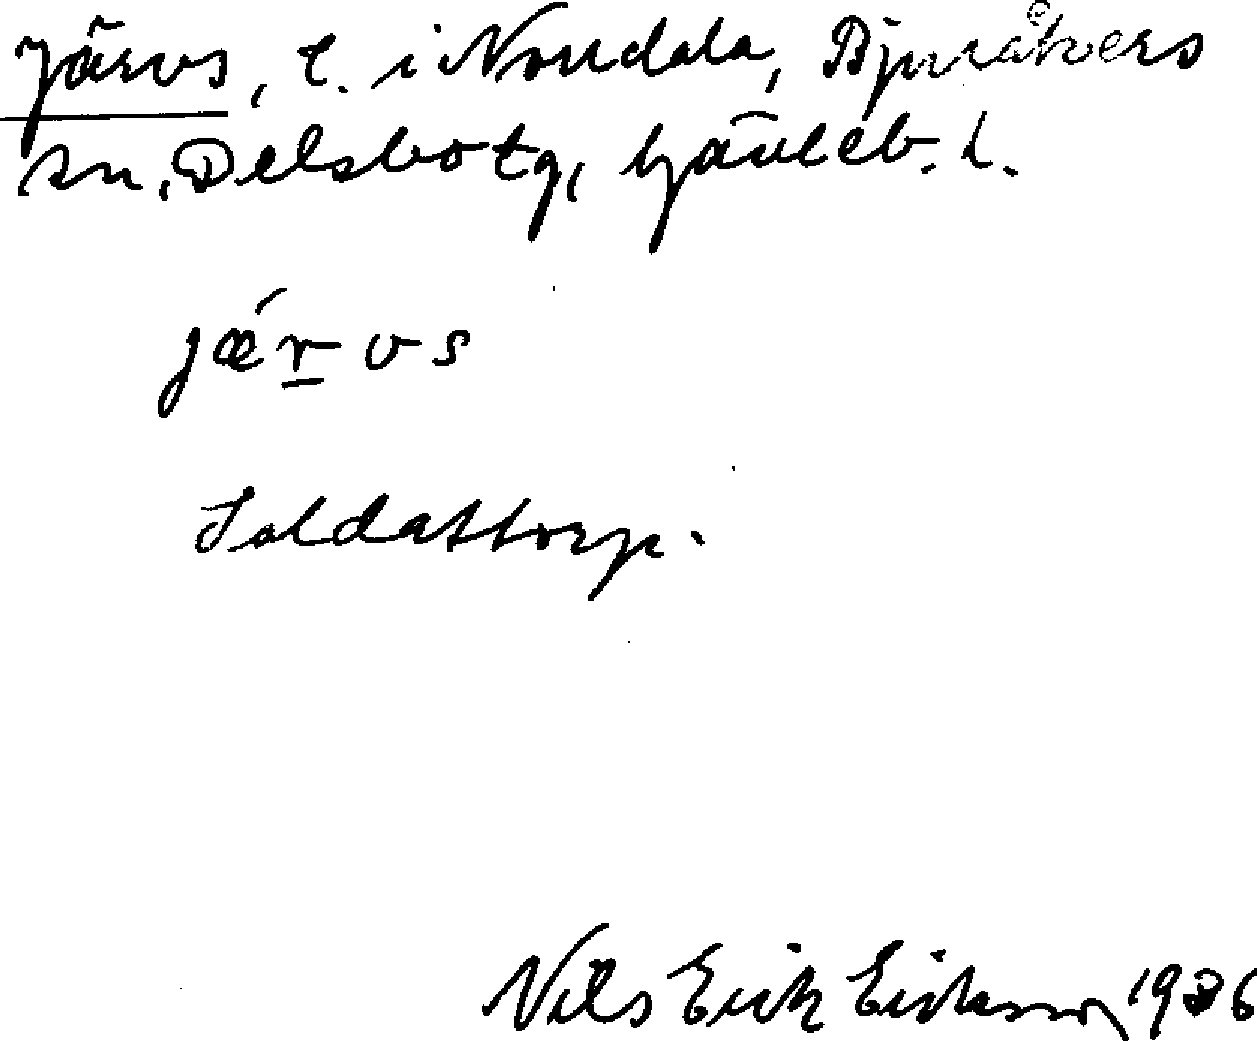 Järvs, t. i Norrdala, Bjuråkers
sn, Delsbo tg, Gävleb. l.
jǽr̲vs
Soldattorp.
Nils Erik Eriksson, 1936